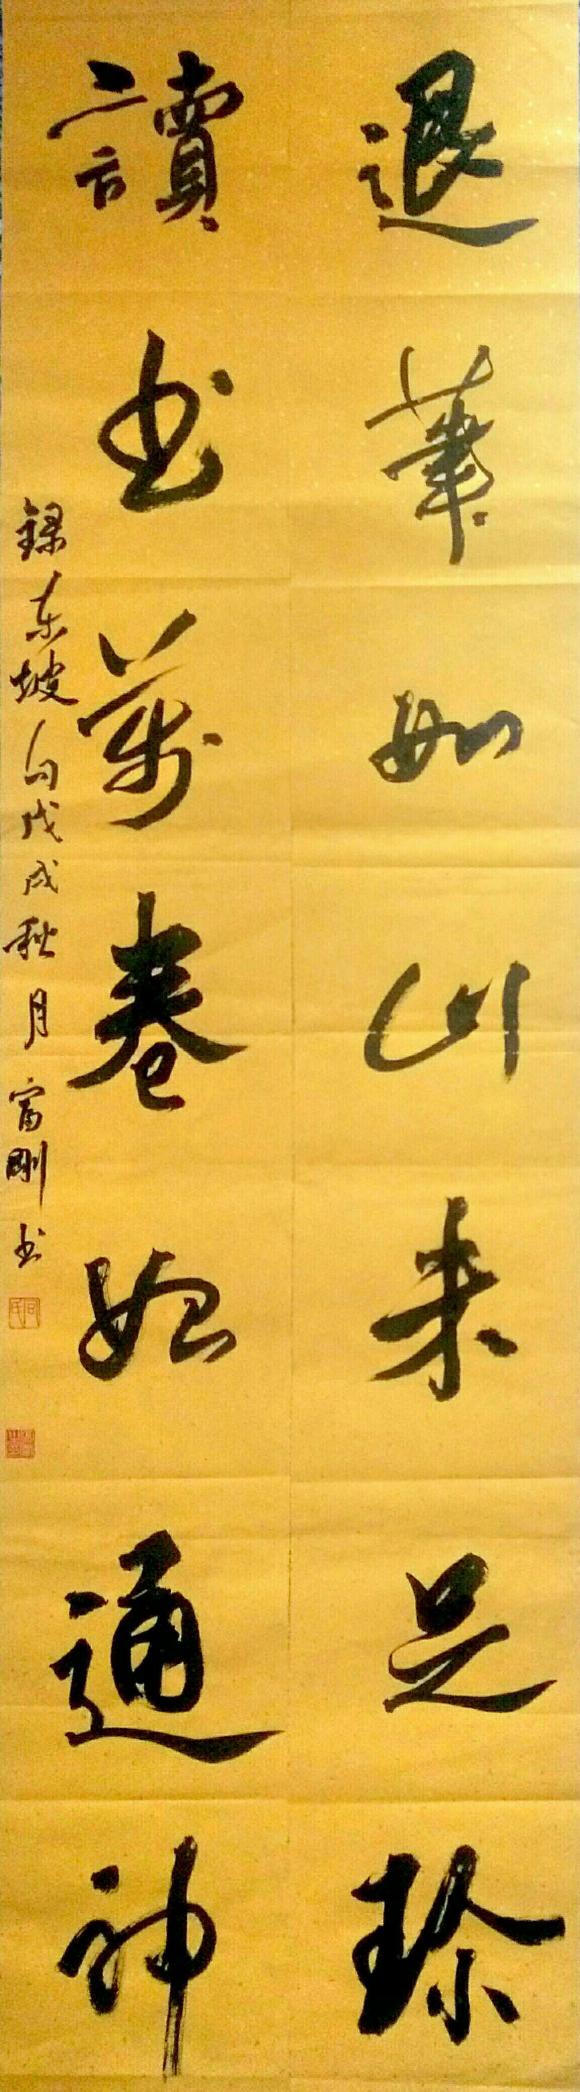 退筆如山未足珍
讀书萬卷始通神
録东坡句戊戌秋月富刚书